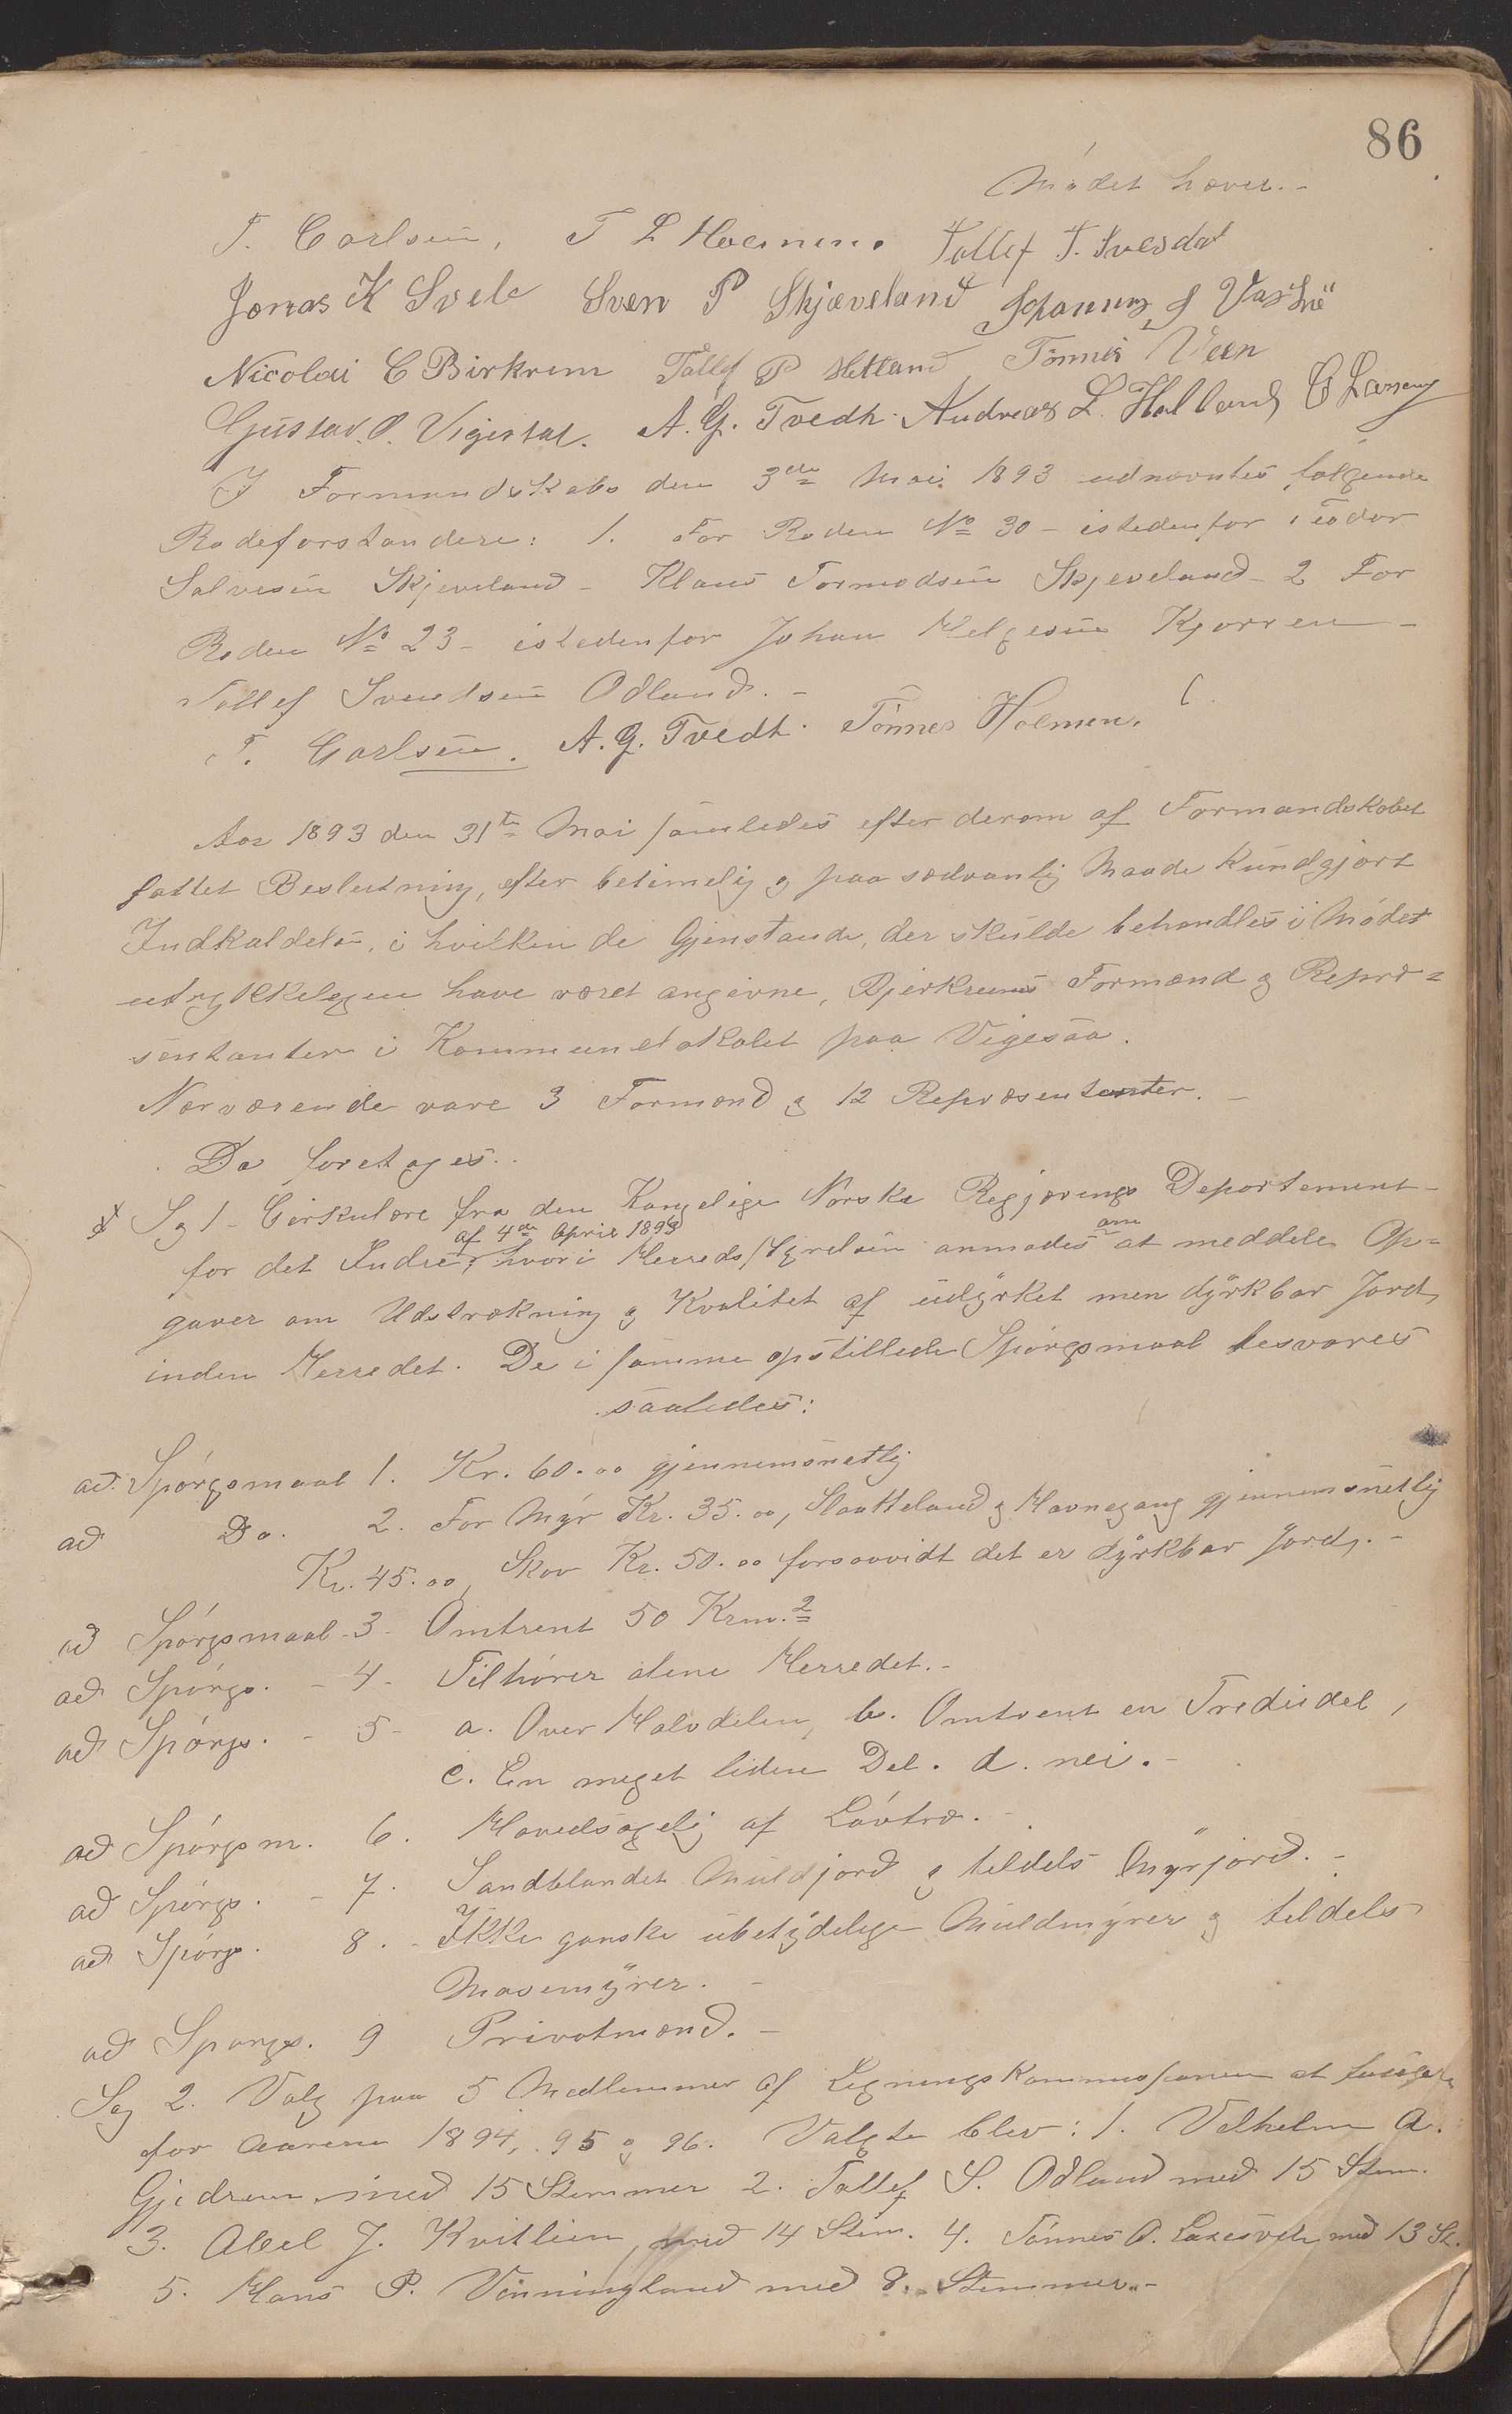 86
Mødet hævet. -
T. Carlsen, T L Holmen. Tollef T. Svesdal
Jonas K Svele Sven P Skjæveland Johannes J Vasbø
Nicolai C Birkrem Tollef P Hetland Tønnes Veen
Gustav. O. Vigestad. A. G. Tvedt. Andreas L. Halland C Larseng
I Formandskabs den 3de Mai 1893 udnævntes følgende
Rodeforstandere: 1. For Roden No 30 - istedenfor Teodor
Salvesen Skjeveland - Klaus Tormodsen Skjeveland - 2 For
Roden No 23 - istedenfor Johan Helgesen Kjørren -
Tollef Svendsen Odland. -
T. Carlsen. A. G. Tvedt. Tønnes Holmen.
Aar 1893 den 31te Mai samledes efter derom af Formandskabet
fattet Beslutning, efter betimelig og paa sædvanlig Maade Kundgjort
Indkaldelse, i hvilken de Gjenstande, der skulde behandles i Mødet
udtrykkeligen have været angivne, Bjerkreims Formænd og Repræ=
sentanter i Kommunelokalet paa Vigesaa.
Nærværende vare 3 Formænd og 12 Repræsentanter. -
Da foretages..
Sag 1 - Cirkulære fra den Kongelige Norske Regjærings Departement
for det Indre, af 4de April 1893 hvori Herreds/tyrelsen anmodes om at meddele Op=
gaver om Udstrækning og Kvalitet af udyrket men dyrkbar Jord
inden Herredet. De i samme opstillede Spørgsmaal besvares
saaledes:
ad. Spørgsmaal 1. Kr. 60.00 gjennemsnetlig
ad Do. 2. For Myr Kr. 35.00, Slaatteland og Havnegang gjennemsnetlig
Kr. 45.00, Skov Kr. 50.00 forsaavidt det er dyrkbar Jord. -
ad Spørgsmaal - 3 - Omtrent 50 Krm.2
ad Spørgs. - 4 - Tilhører alene Herredet. -
ad Spørgs. - 5 - a. Over Halvdelen, b. Omtrent en Trediedel,
c. En meget liden Del. d. nei. -
ad Spørgsm. 6. Hovedsagelig af Løvtræ. -
ad Spørgs. - 7. Sandblandet Muldjord og tildels Myrjord. -
ad Spørgs. 8. - Ikke ganske ubetydelige Muldmyrer og tildels
Mosemyrer. -
ad Spørgs. 9 Privatmænd. -
Sag 2. Valg paa 5 Medlemmer af Ligningskommissionen at fungere
for Aarene 1894, 95 og 96. Valgte blev: 1. Vilhelm A.
Gjedrem med 15 Stemmer 2. Tollef S. Odland med 15 Stem.
3. Abel J. Kvitlien, med 14 Stem. 4. Tønnes O. Laxesvele med 13 St.
5. Hans P. Vinningland med 8. Stemmer. -